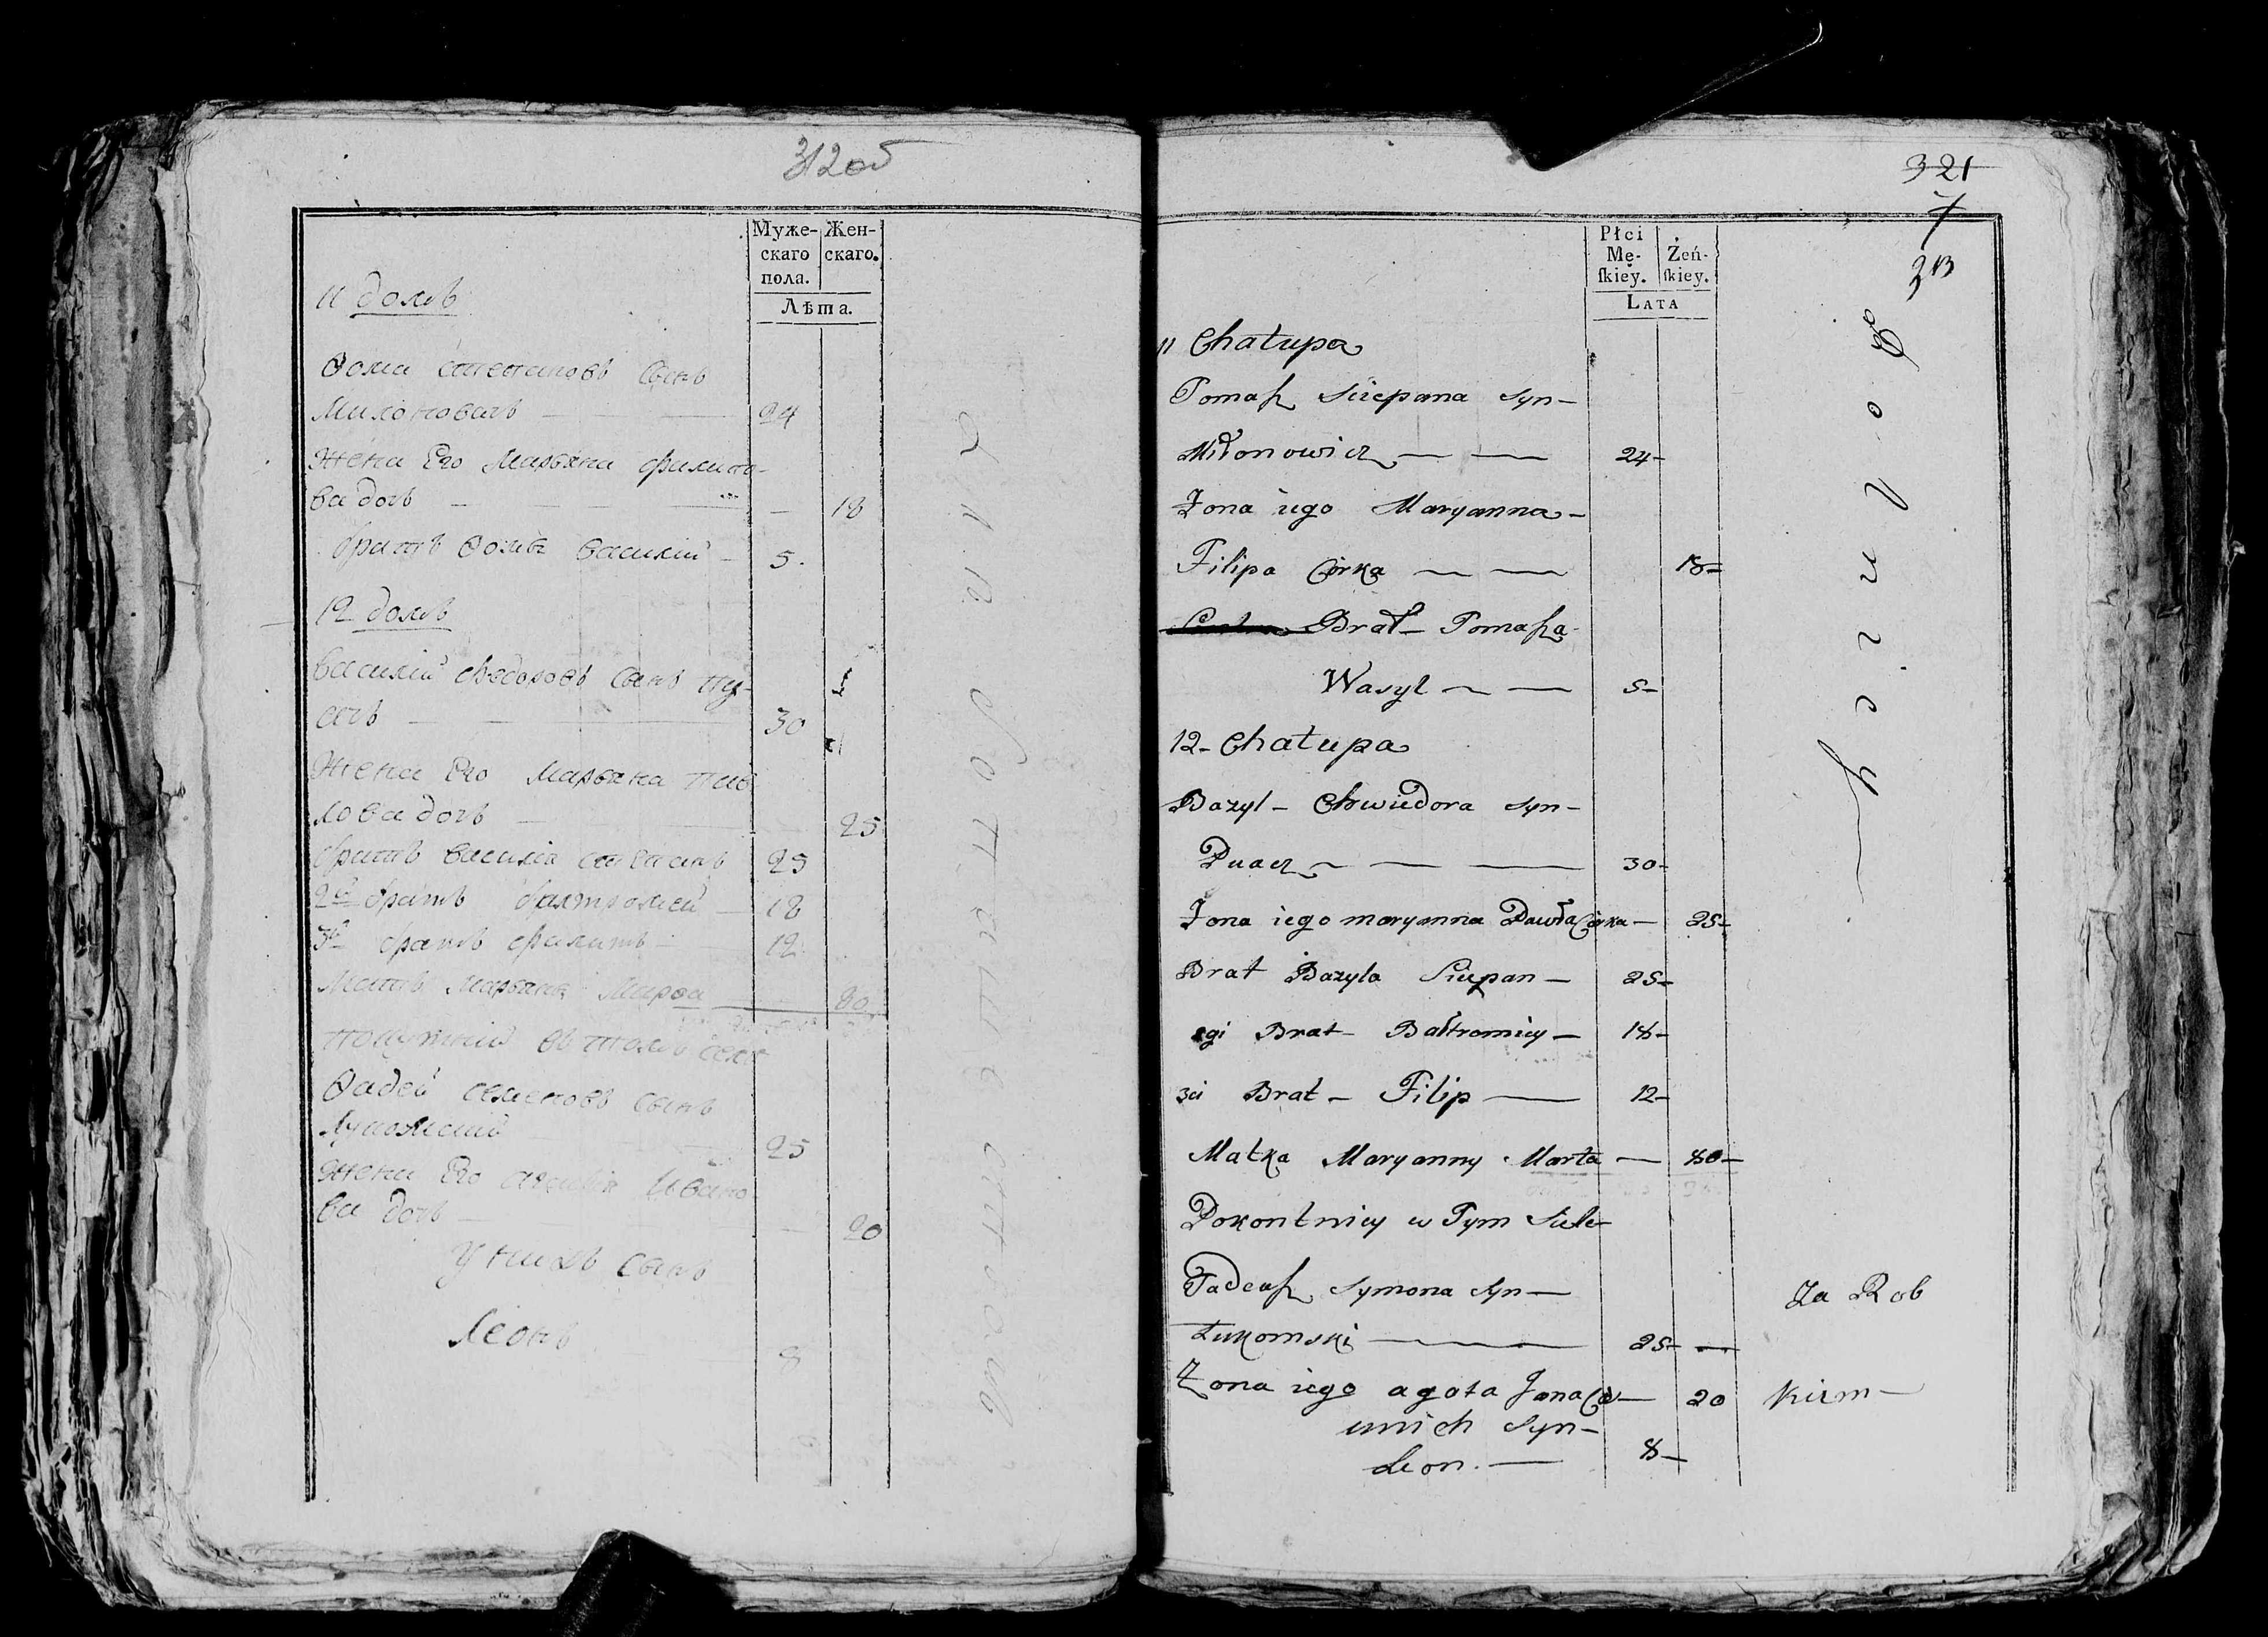 312об
Муже-
скаго
пола.
Жен-
скаго.
Лѣта.
11 домъ
Фома степановъ Сынъ
Милоновичъ — 24
Жена Его Марьяна филипо-
ва дочь — — 18
братъ Фомы василий — 5.
12 домъ
василий Федоровъ Сынъ пу-
сачъ — 30
Жена Его Марьяна пав
лова дочь — 25
братъ василія степанъ 25
2й братъ балтромей — 18
3й братъ филипъ — 12
Мать Марьяны Марфа — 80
покутний въ томъ селѣ
Фадей семеновъ сынъ
Лукомский 25
Жена Его агафія Ивано
ва дочь — — 20
У нихъ Сынъ
Леонъ 8
321
7
313
Płci
Mę-
ſkiey.
Żeń-
ſkiey.
LATA
11 Chałupa
Tomaſz Sciepana Syn —
Miłonowicz — — 24 —
Żona iego Maryanna —
Filipa Córka — — 18 —
Brat — Tomaſza
Wasyl — — 5 —
12 — Chałupa
Bazyl — Chwiedora Syn —
Puacz — — — 30 —
Żona iego maryanna Pawła Córka — 25 —
Brat Bazyla Sciepan — 25 —
2gi Brat — Bałtromiey — 18 —
3ci Brat — Filip — 12 —
Matka Maryanny Marta — 80 —
Pokontnicy w Tym Siele
Tadeuſz Symona Syn —
Łukomski — 25 — —
Żona iego agata Jana Có — 20
unich Syn —
Leon. — 8 —
Za Rob
kiem —